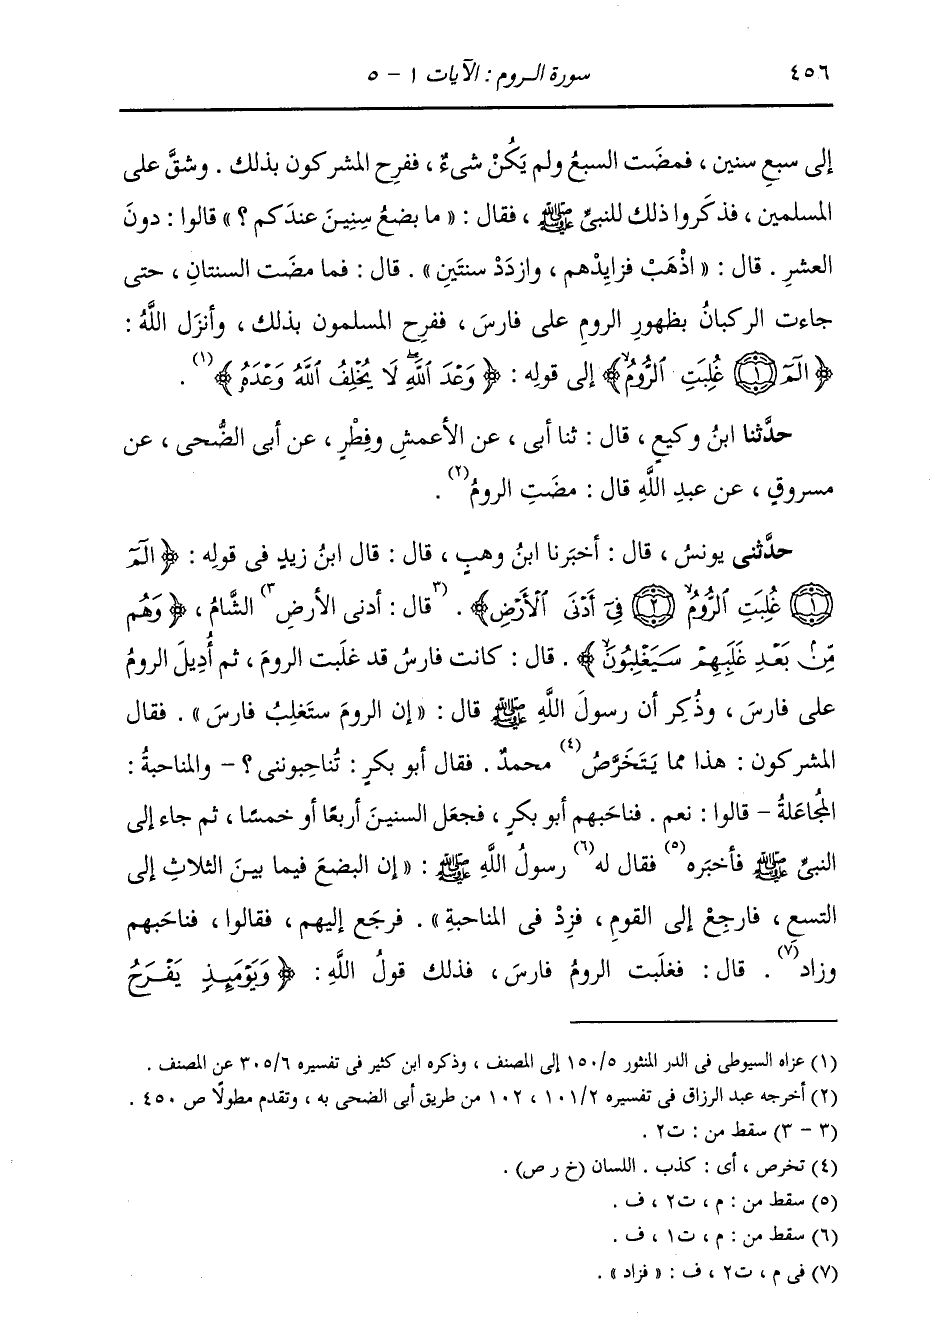 ٤٥٦ سورة الروم : الآيات ١ - ٥
إلى سبعِ سنين ، فمضَت السبعُ ولم يَكُنْ شىءٌ ، ففرِح المشركون بذلك . وشقَّ على
المسلمين ، فذكَروا ذلك للنبىِّ ﷺ ، فقال : « ما بضعُ سِنِينَ عندَكم ؟ » قالوا : دونَ
العشرِ . قال : « اذْهَبْ فزايِدْهم ، وازدَدْ سنتَينِ » . قال : فما مضَت السنتانِ ، حتى
جاءت الركبانُ بظهورِ الرومِ على فارسَ ، ففرِح المسلمون بذلك ، وأنزَل اللَّهُ :
﴿ الٓمٓ ١ غُلِبَتِ ٱلرُّومُ ﴾ إلى قولِه : ﴿ وَعْدَ ٱللَّهِ لَا يُخْلِفُ ٱللَّهُ وَعْدَهُۥ ﴾ (١) .
حدَّثنا ابنُ وكيعٍ ، قال : ثنا أبى ، عن الأعمشِ وفِطْرٍ ، عن أبى الضُّحى ، عن
مسروقٍ ، عن عبدِ اللَّهِ قال : مضَتِ الرومُ (٢) .
حدَّثنى يونسُ ، قال : أخبَرنا ابنُ وهبٍ ، قال : قال ابنُ زيدٍ فى قولِه : ﴿ الٓمٓ
١ غُلِبَتِ ٱلرُّومُ ٢ فِىٓ أَدْنَى ٱلْأَرْضِ ﴾ . (٣ قال : أدنى الأرضِ ٣) الشَّامُ ، ﴿ وَهُم
مِّنۢ بَعْدِ غَلَبِهِمْ سَيَغْلِبُونَ ﴾ . قال : كانت فارسُ قد غلَبت الرومَ ، ثم أُدِيلَ الرومُ
على فارسَ ، وذُكِر أن رسولَ اللَّهِ ﷺ قال : « إن الرومَ ستَغلِبُ فارسَ » . فقال
المشركون : هذا مما يَتَخَرَّصُ (٤) محمدٌ . فقال أبو بكرٍ : تُناحِبوننى ؟ - والمناحبةُ :
المُجاعَلةُ - قالوا : نعم . فناحَبهم أبو بكرٍ ، فجعَل السنينَ أربعًا أو خمسًا ، ثم جاء إلى
النبىِّ ﷺ فأخبَره (٥) فقال له (٦) رسولُ اللَّهِ ﷺ : « إن البضعَ فيما بينَ الثلاثِ إلى
التسعِ ، فارجِعْ إلى القومِ ، فزِدْ فى المناحبةِ » . فرجَع إليهم ، فقالوا ، فناحَبهم
وزاد (٧) . قال : فغلَبت الرومُ فارسَ ، فذلك قولُ اللَّهِ : ﴿ وَيَوْمَئِذٍ يَفْرَحُ
(١) عزاه السيوطى فى الدر المنثور ١٥٠/٥ إلى المصنف ، وذكره ابن كثير فى تفسيره ٣٠٥/٦ عن المصنف .
(٢) أخرجه عبد الرزاق فى تفسيره ١٠١/٢ ، ١٠٢ من طريق أبى الضحى به ، وتقدم مطولًا ص ٤٥٠ .
(٣ - ٣) سقط من : ت٢ .
(٤) تخرص ، أى : كذب . اللسان (خ ر ص) .
(٥) سقط من : م ، ت٢ ، ف .
(٦) سقط من : م ، ت١ ، ف .
(٧) فى م ، ت٢ ، ف : « فزاد » .